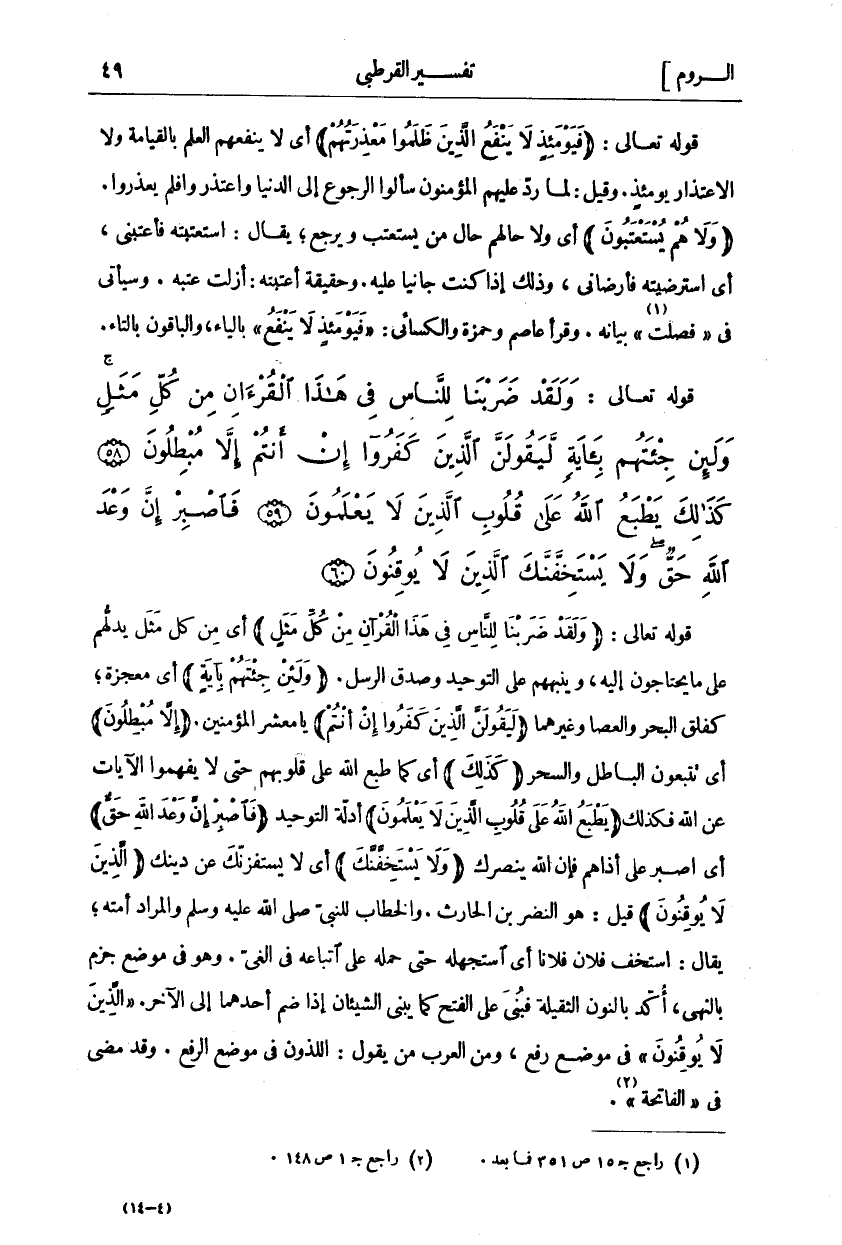 الـــروم ] تفســـير القرطبى ٤٩
قوله تعـالى : ﴿فَيَوْمَئِذٍ لَا يَنْفَعُ الَّذِينَ ظَلَمُوا مَعْذِرَتُهُمْ﴾ أى لا ينفعهم العلم بالقيامة ولا
الاعتذار يومئذٍ. وقيل : لمـا ردّ عليهم المؤمنون سألوا الرجوع إلى الدنيا واعتذروا فلم يعذروا.
﴿ وَلَا هُمْ يُسْتَعْتَبُونَ ﴾ أى ولا حالهم حال من يستعتب و يرجع ؛ يقـال : استعتبته فأعتبنى ،
أى استرضيته فأرضانى ، وذلك إذا كنت جانيا عليه. وحقيقة أعتبته : أزلت عتبه . وسيأتى
فى « فصلت » (١) بيانه . وقرأ عاصم وحمزة والكسائى : «فَيَوْمَئِذٍ لَا يَنْفَعُ» بالياء، والباقون بالتاء.
قوله تعـالى : وَلَقَدْ ضَرَبْنَا لِلنَّـاسِ فِى هَـٰذَا ٱلْقُرْءَانِ مِن كُلِّ مَثَـلٍۚ
وَلَئِن جِئْتَهُم بِـَٔايَةٍ لَّيَقُولَنَّ ٱلَّذِينَ كَفَرُوٓا إِنْ أَنتُمْ إِلَّا مُبْطِلُونَ ۝٥٨
كَذَٰلِكَ يَطْبَعُ ٱللَّهُ عَلَىٰ قُلُوبِ ٱلَّذِينَ لَا يَعْلَمُونَ ۝٥٩ فَٱصْبِرْ إِنَّ وَعْدَ
ٱللَّهِ حَقٌّۖ وَلَا يَسْتَخِفَّنَّكَ ٱلَّذِينَ لَا يُوقِنُونَ ۝٦٠
قوله تعالى : ﴿ وَلَقَدْ ضَرَبْنَا لِلنَّاسِ فِى هَذَا الْقُرْآنِ مِنْ كُلِّ مَثَلٍ ﴾ أى مِن كل مَثَل يدلُّهم
على ما يحتاجون إليه ، و ينبههم على التوحيد وصدق الرسل . ﴿ وَلَئِنْ جِئْتَهُمْ بِآيَةٍ ﴾ أى معجزة ؛
كفلق البحر والعصا وغيرهما ﴿لَيَقُولَنَّ الَّذِينَ كَفَرُوا إِنْ أَنْتُمْ﴾ يا معشر المؤمنين. ﴿إِلَّا مُبْطِلُونَ﴾
أى تتبعون البـاطل والسحر ﴿ كَذَلِكَ ﴾ أى كما طبع الله على قلوبهم حتى لا يفهموا الآيات
عن الله فكذلك ﴿يَطْبَعُ اللهُ عَلَى قُلُوبِ الَّذِينَ لَا يَعْلَمُونَ﴾ أدلّة التوحيد ﴿فَٱصْبِرْ إِنَّ وَعْدَ اللهِ حَقٌّ﴾
أى اصـبر على أذاهم فإن الله ينصرك ﴿ وَلَا يَسْتَخِفَّنَّكَ ﴾ أى لا يستفزنّكَ عن دينك ﴿ الَّذِينَ
لَا يُوقِنُونَ ﴾ قيل : هو النضر بن الحارث . والخطاب للنبىّ صلى الله عليه وسلم والمراد أمته ؛
يقال : استخف فلان فلانا أى ٱستجهله حتى حمله على ٱتباعه فى الغىّ . وهو فى موضع جزم
بالنهى ، أُكّد بالنون الثقيلة فبُنىَ على الفتح كما يبنى الشيئان إذا ضم أحدهما إلى الآخر. «الَّذِينَ
لَا يُوقِنُونَ» فى موضـع رفع ، ومن العرب من يقول : اللذون فى موضع الرفع . وقد مضى
فى « الفاتحة » (٢) .
(١) راجع جـ ١٥ ص ٣٥١ فمـا بعد . (٢) راجع جـ ١ ص ١٤٨ .
(١٤-٤)